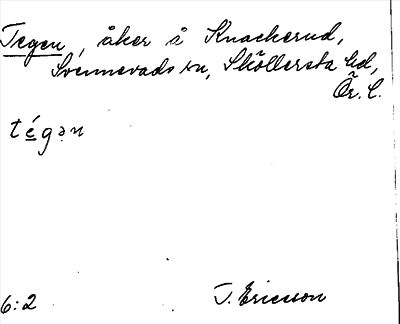 Tegen, åker å Knackerud,
Svennevads sn, Sköllersta hd,
Ör. l.
tégən
6:2 J. Ericsson